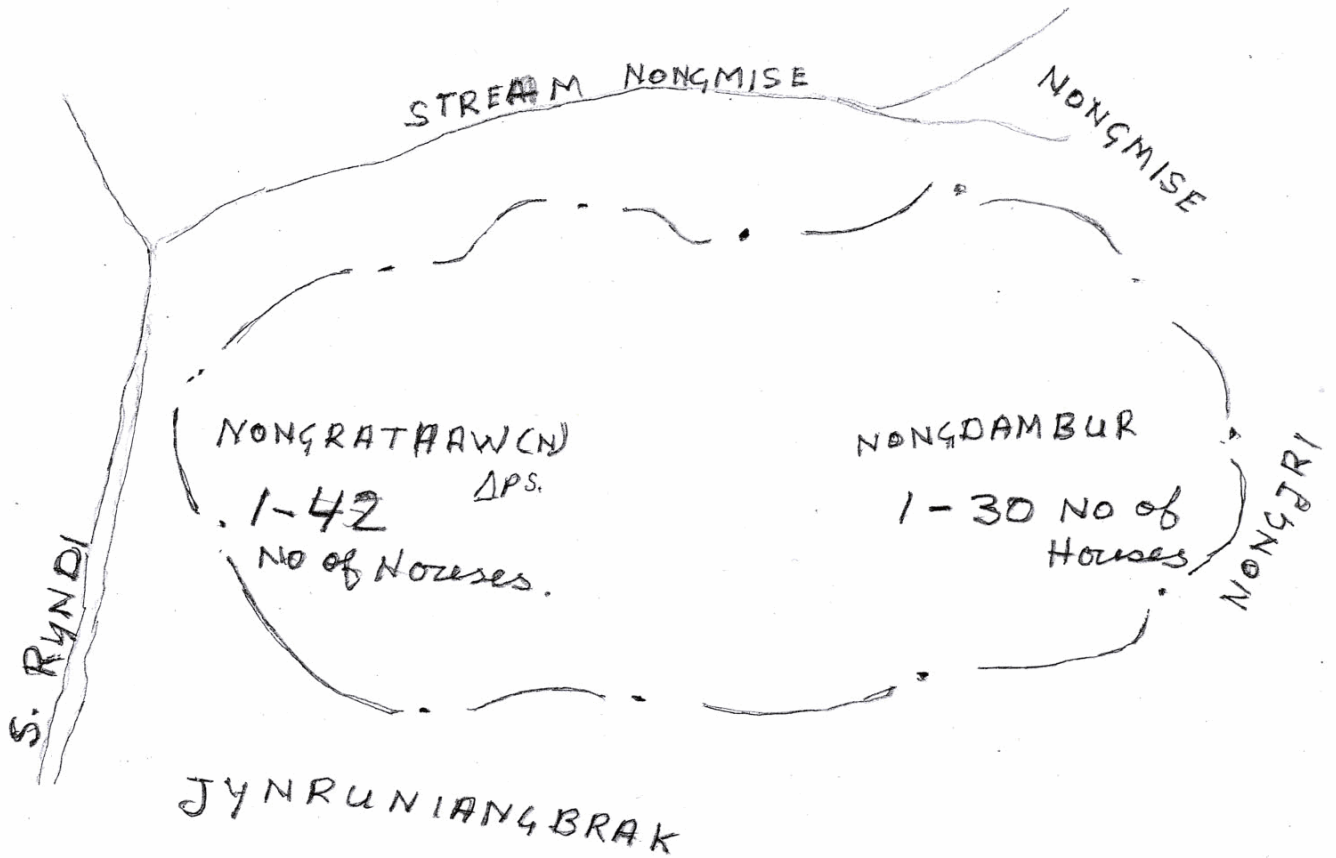 STREAM NONGMISE
NONGMISE
NONGRATHAW(N)
ΔPS.
1-42
No of Houses.
NONGDAMBUR
1-30 No of
Houses
NONGJRI
S. RYNDI
JYNRUNIANGBRAK